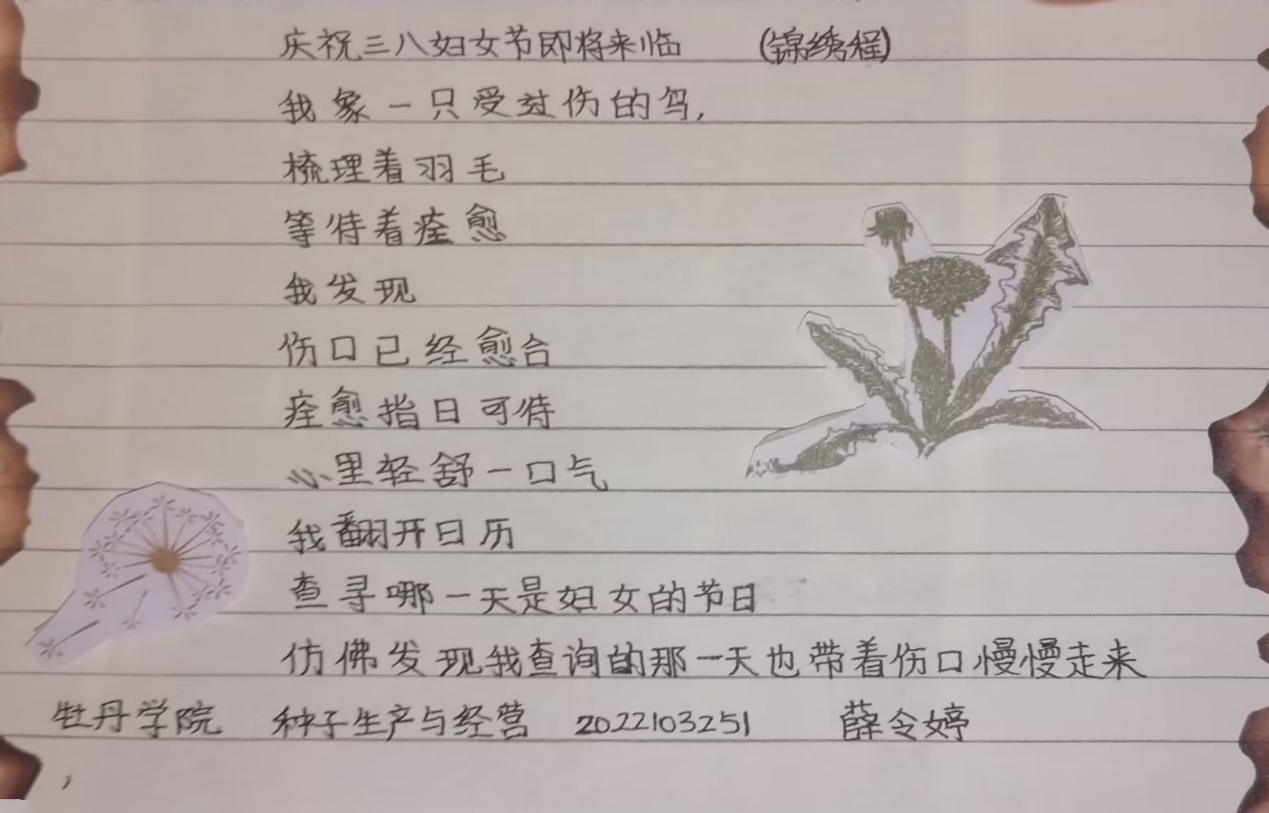 庆祝三八妇女节即将来临 (锦绣程)
我象一只受过伤的鸟,
梳理着羽毛
等待着痊愈
我发现
伤口已经愈合
痊愈指日可待
心里轻舒一口气
我翻开日历
查寻哪一天是妇女的节日
仿佛发现我查询的那一天也带着伤口慢慢走来
牡丹学院 种子生产与经营 2022103251 薛令婷
,